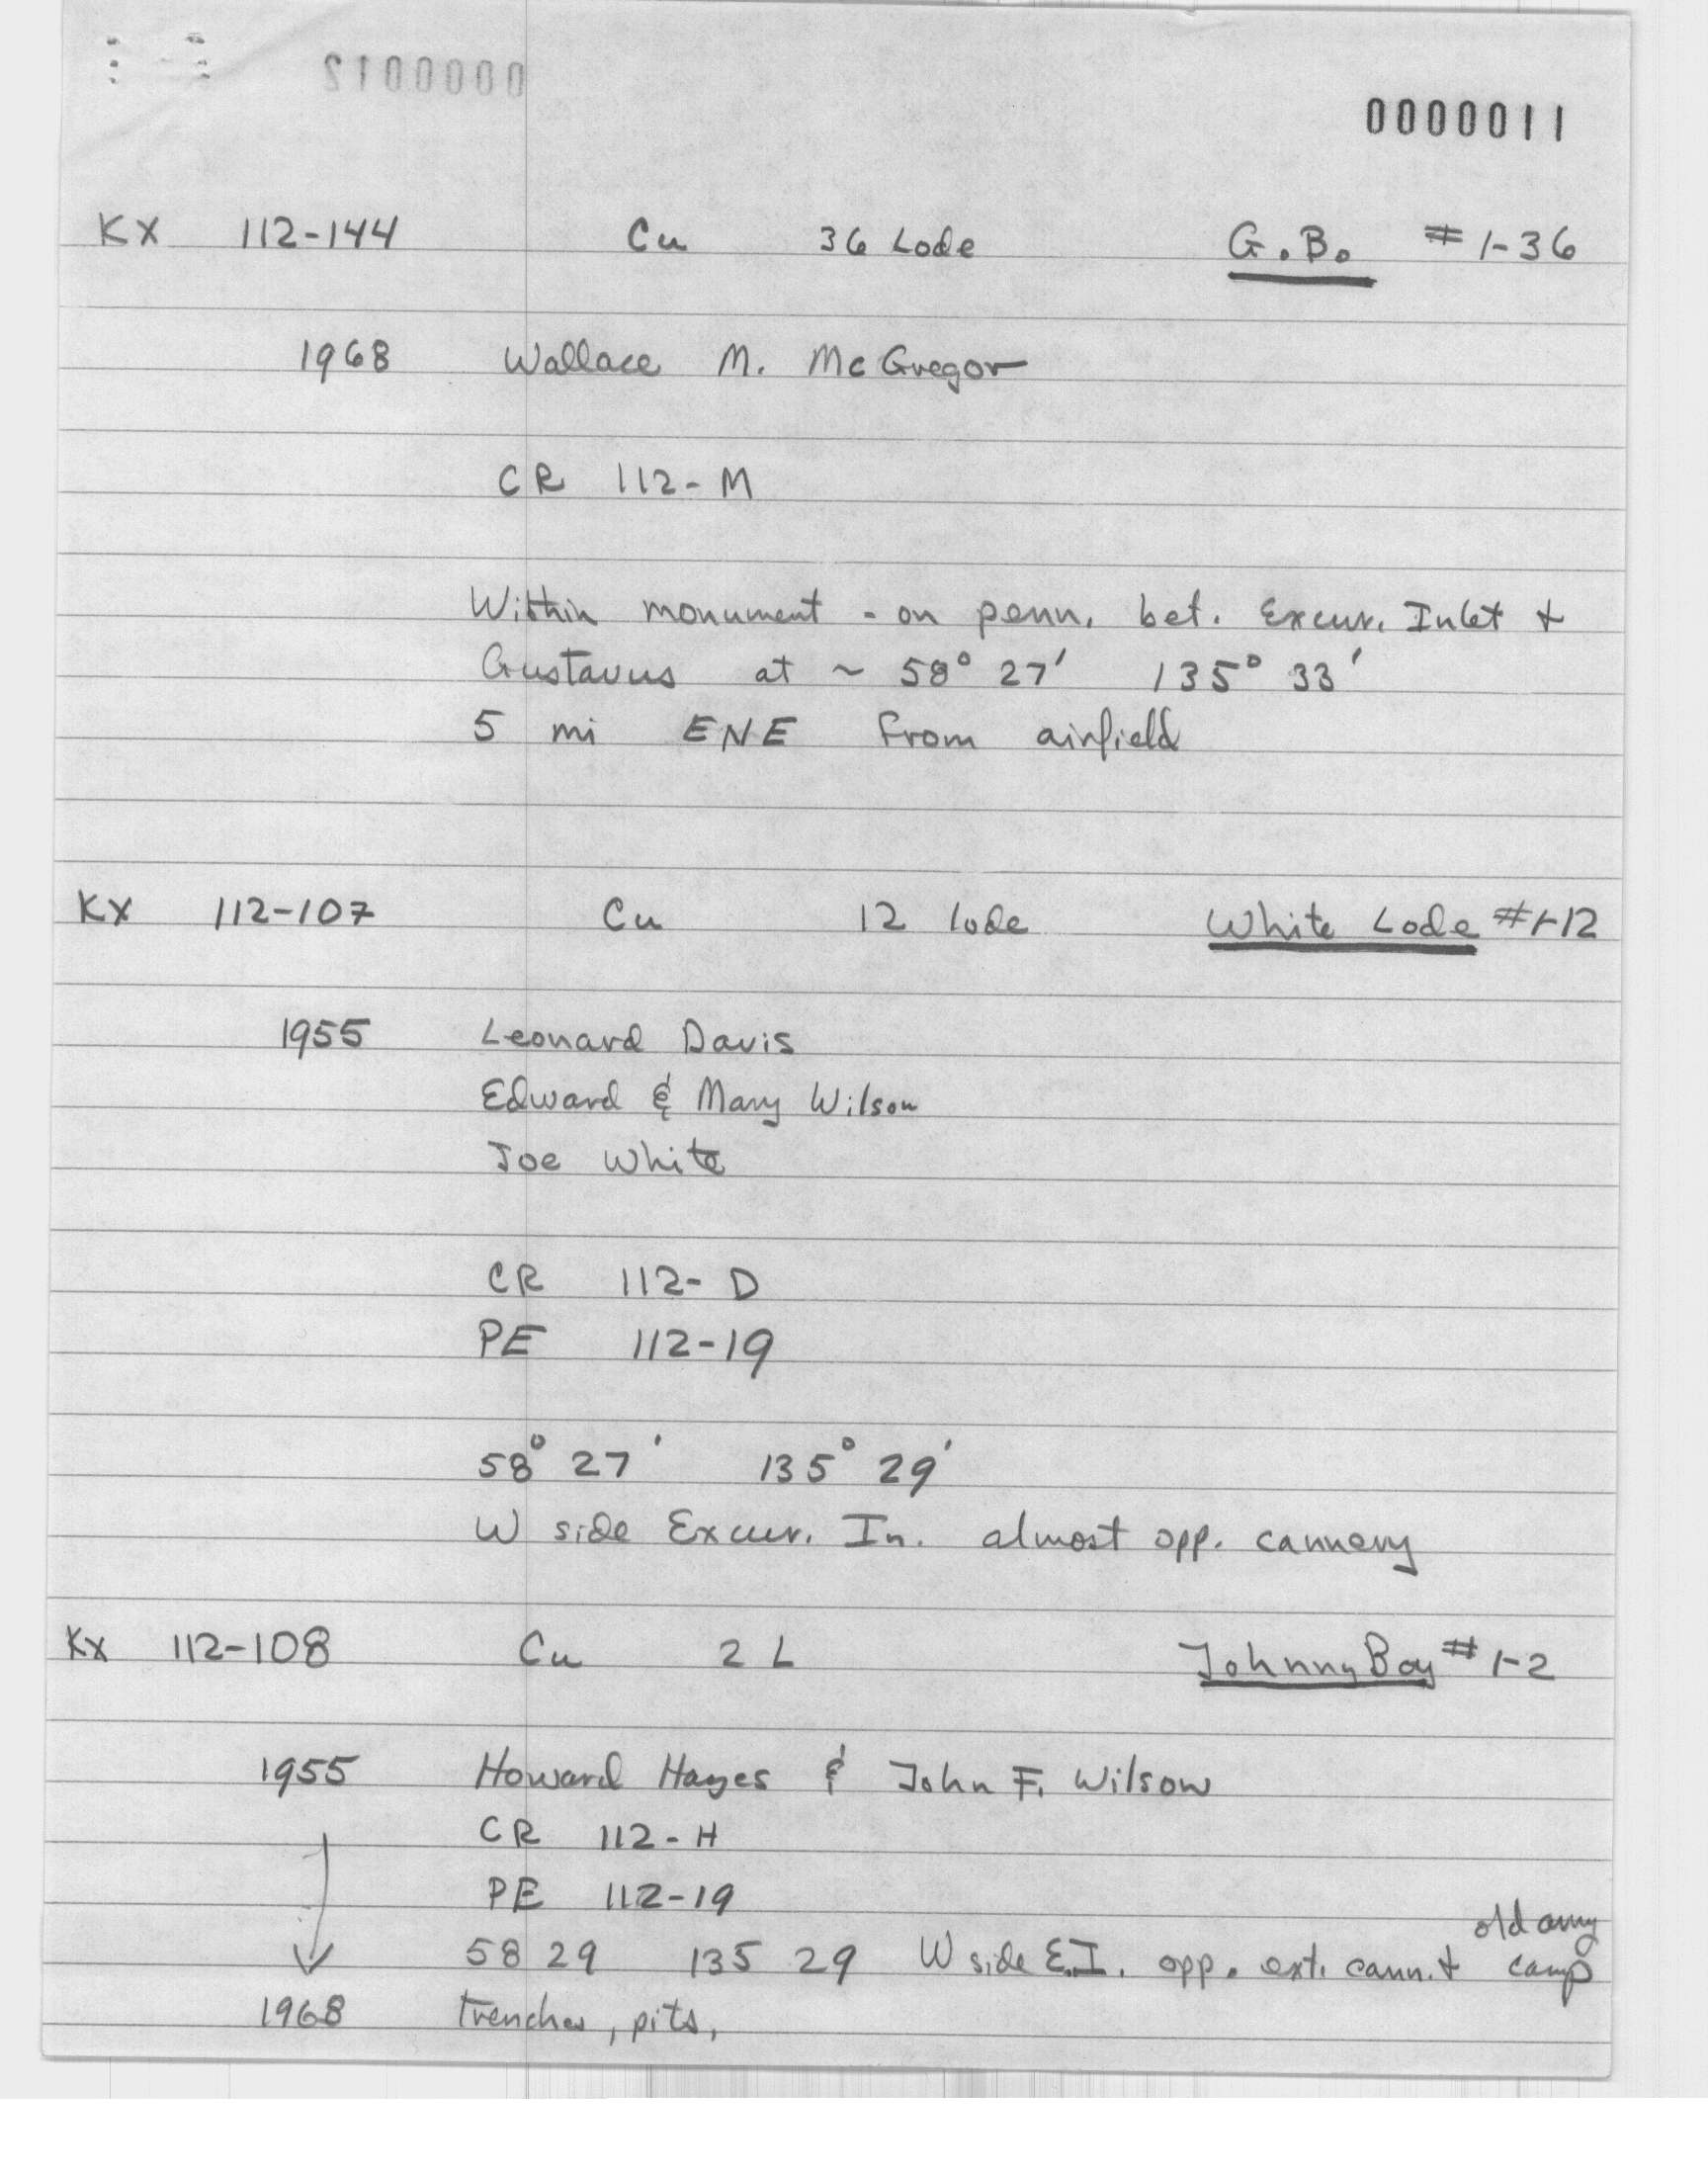 0000012
0000011
KX 112-144 Cu 36 Lode G.B. #1-36
1968 Wallace M. McGregor
CR 112-M
Within monument - on penn. bet. Excur. Inlet +
Gustavus at ~ 58° 27' 135° 33'
5 mi ENE from airfield
KX 112-107 Cu 12 lode White Lode #1-12
1955 Leonard Davis
Edward & Mary Wilson
Joe White
CR 112-D
PE 112-19
58° 27' 135° 29'
W side Excur. In. almost opp. cannery
KX 112-108 Cu 2 L Johnny Boy #1-2
1955 Howard Hayes & John F. Wilson
CR 112-H
PE 112-19
old army
58 29 135 29 W side E.I. opp. ext. cann. + camp
1968 trenches, pits,